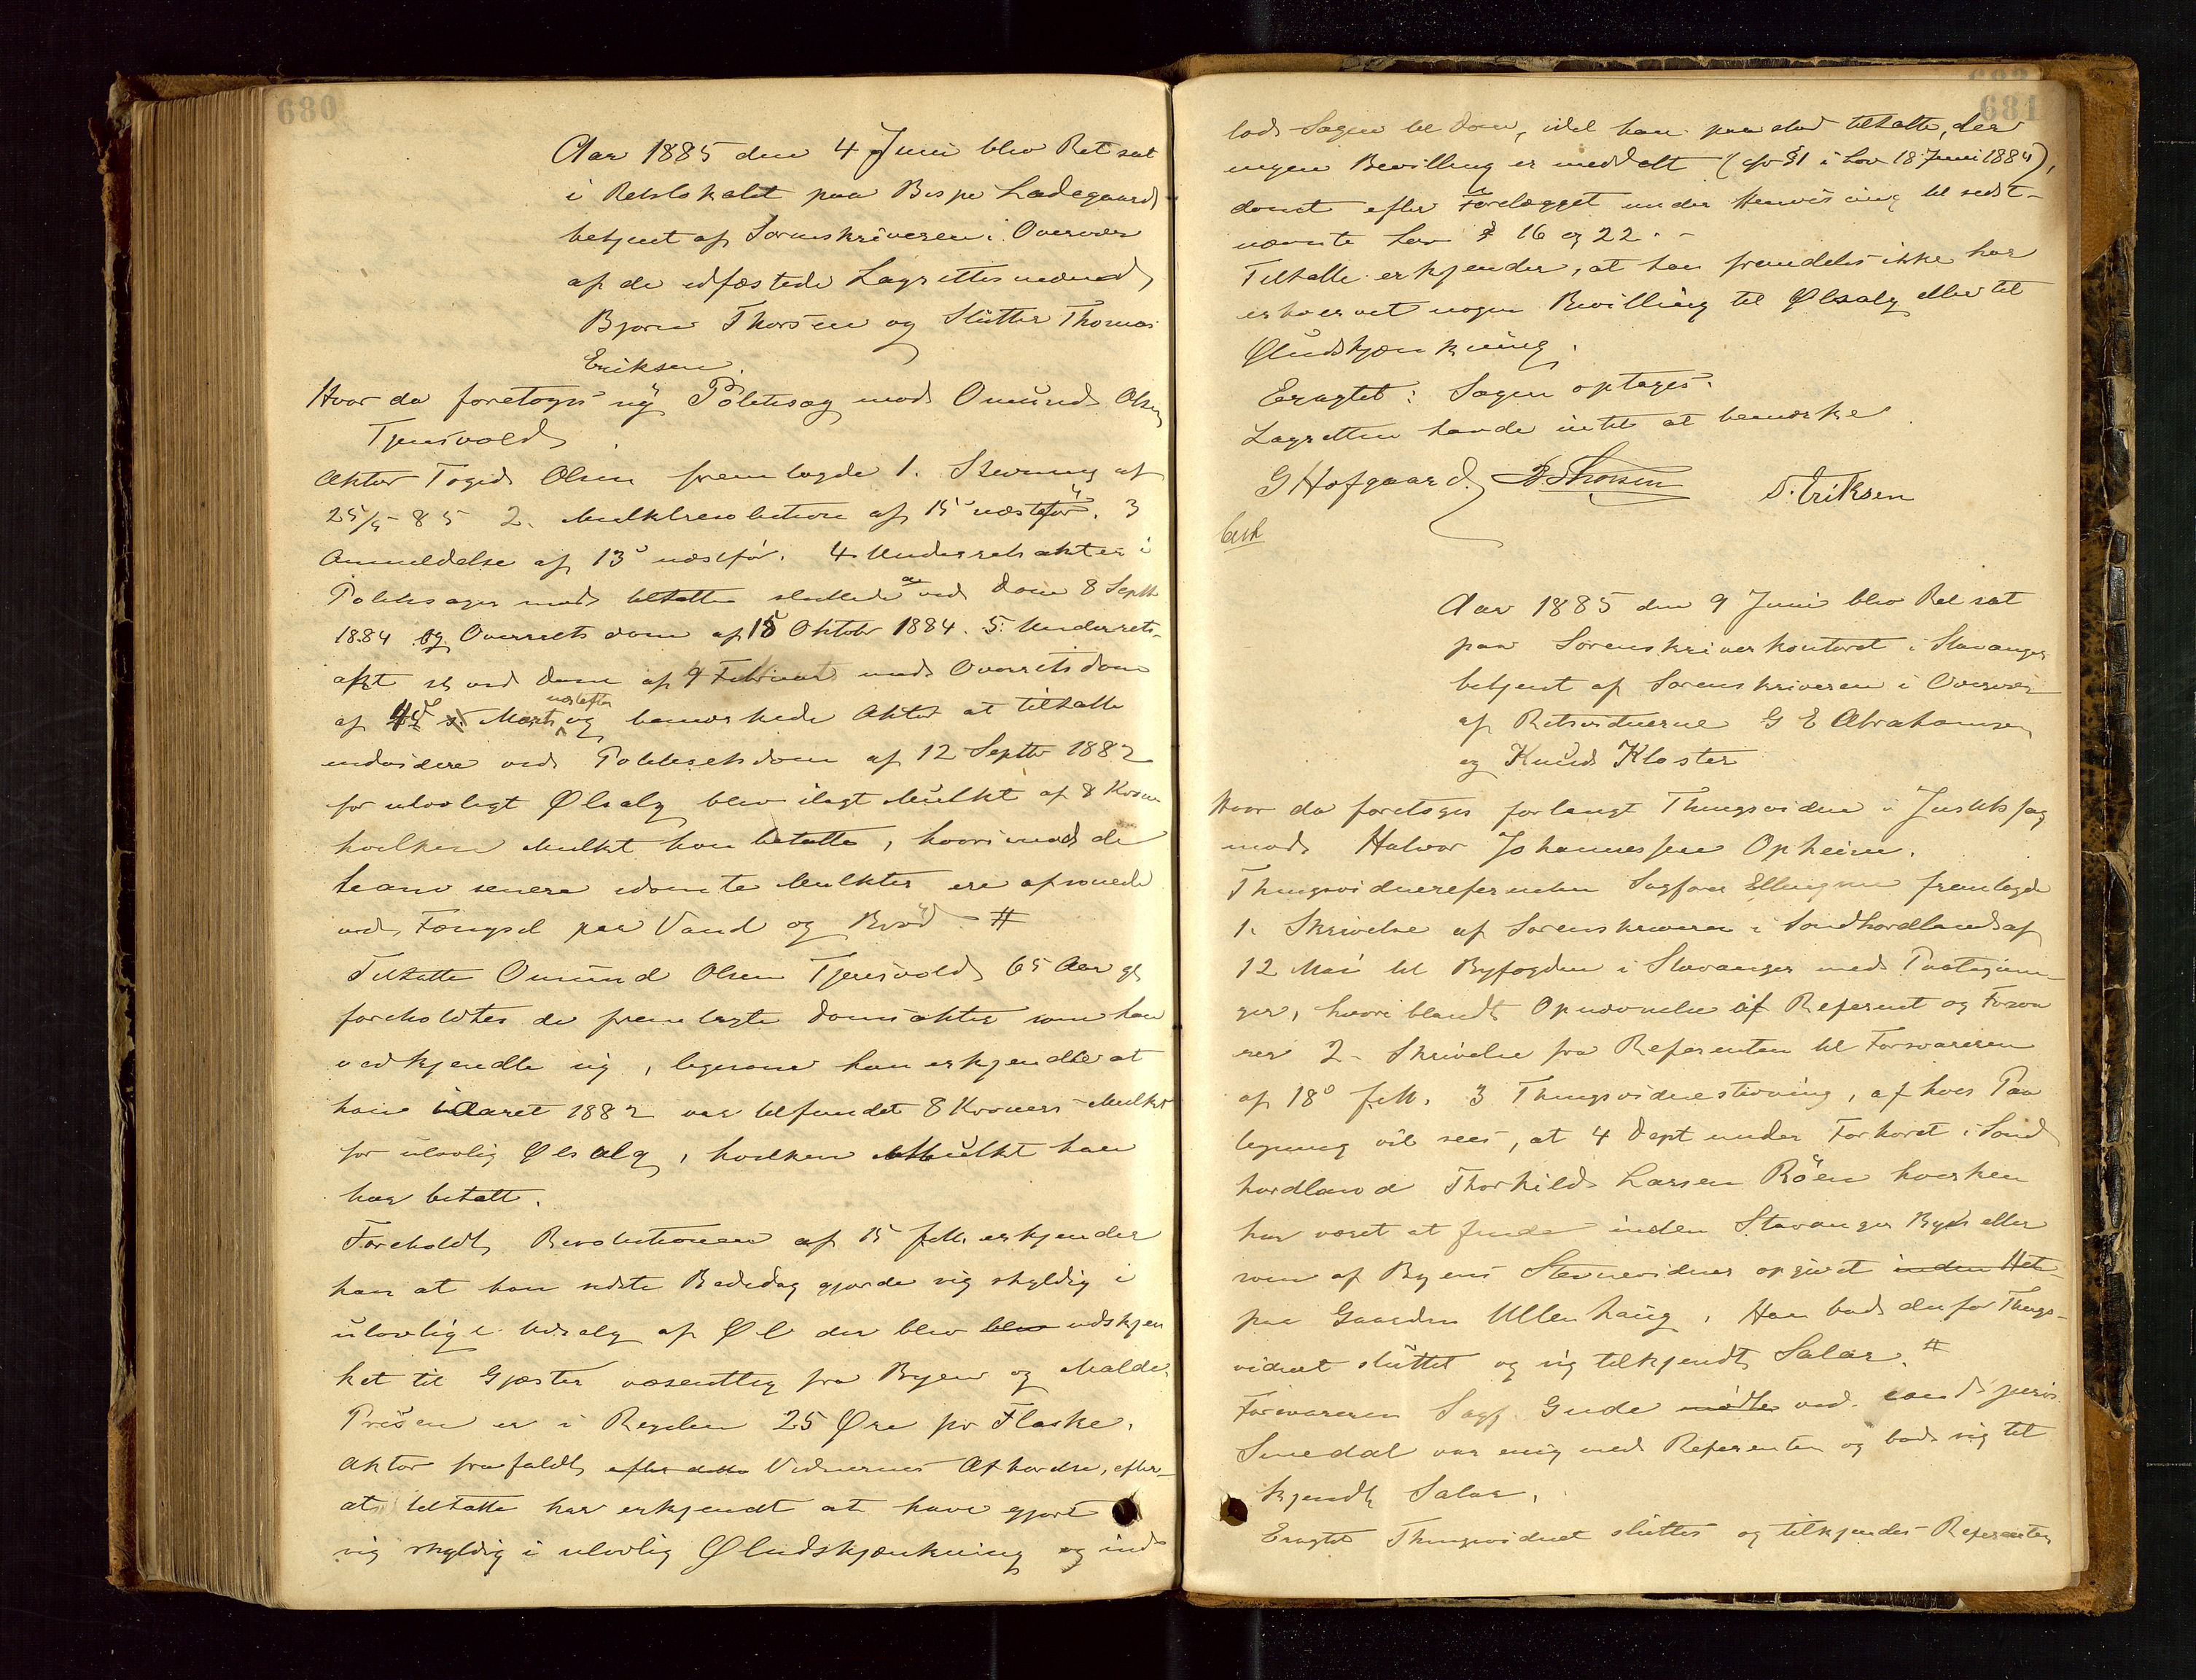 680
Aar 1885 den 4 Juni blev Ret sat
i Retslokalet paa Bispe Ladegaard
betjent af Sorenskriveren i Overvær
af de edfæstede Lagrettesmænd
Bjørn Thorsen og Slutter Thomas
Eriksen.
Hvor da foretoges ny Politisag mod Omund Olsen
Tjensvold
Aktor Olsen fremlagde 1. Stevning af
25/5 85 2. Mulktresolution af 15 næstfør. 3
Anmeldelse af 13de næstfør. 4 Underretsakter i
Politisager mod tiltalte sluttede ved Dom 8 Septbr
1884 og Overretsdom af 15 Oktobr 1884. 5. Underrets-
akt ved Dom af 9 Februar med Overretsdom
af Marts næstefter og bemærkede Aktor at tiltalte
endvidere ved Politiretsdom af 12 Septbr 1882
for ulovligt Ølsalg blev ilagt Mulkt af 8 Kroner
hvilken Mulkt han betalte, hvorimod de
ham senere idømte Mulkter ere afsonede
ved Fængsel paa Vand og Brød. #
Tiltalte Omund Olsen Tjensvold 65 Aar gl
foreholdtes de fremlagte Domsakter som han
vedkjendte sig, ligesom han erkjendte at
han i Aaret 1882 var tilfundet 8 Kroners Mulkt
for ulovlig Ølsalg, hvilken Mulkt han
har betalt.
Foreholdt Resolutionen af 15 f.M. erkjender
han at han sidste Bededag gjorde sig skyldig i
ulovlige Udsalg af Øl der blev blev udskjen
ket til Gjæster væsentlig fra Byen og Malde.
Prisen er i Regelen 25 Øre pr Flaske.
Aktor frafaldt efter dette Vidnernes Afhørelse, efter-
at tiltalte har erkjendt at have gjort
sig skyldig i ulovlig Øludskjænkning og ind
681
lod Sagen til Dom, idet han paastod tiltalte, der
ingen Bevilling er meddelt (cfr § 1 i Lov 18 Juni 1884),
dømt efter Forelægget under Henvisning til sidst-
nævnte Lov § 16 og 22. -
Tiltalte erkjender, at han fremdeles ikke har
erhvervet nogen Bevilling til Ølsalg eller til
Øludskjænkning.
Eragtet: Sagen optages.
Lagretten havde intet at bemærke
G Hofgaard B. Thorsen T. Eriksen
Aar 1885 den 9 Juni blev Ret sat
paa Sorenskriverkontoret i Stavanger
betjent af Sorenskriveren i Overvær
af Retsvidnerne G E Abrahamsen
og Knud Kloster
Hvor da foretoges forlangt Thingsvidne i Justitssag
mod Halvor Johannessen Opheim.
Thingsvidnereferenten Sagfører Ellingsen fremlagde
1. Skrivelse af Sorenskriveren i Søndhordland af
12 Mai til Byfogden i Stavanger med Paategnin-
ger, hvoriblandt Opnævnelse af Referent og Forsva
rer 2 - Skrivelse fra Referenten til Forsvareren
af 18de f.M. 3 Thingsvidnestevning, af hvis Paa
tegning vil sees, at 4 Dept under Forhøret i Sønd
hordland Thorkild Larsen Röen hverken
har været at finde inden Stavanger By eller
som af Byens Stevnevidner opgivet inden Het-
paa Gaarden Ullenhaug. Han bad derfor Things-
vidnet sluttet og sig tilkjendt Salær. #
Forsvareren Sagf. Gude mødte ved cand. juris
Smedal var enig med Referenten og bad sig til
kjendt Salær.
Eragtet Thingsvidnet sluttes og tilkjendes Referenten